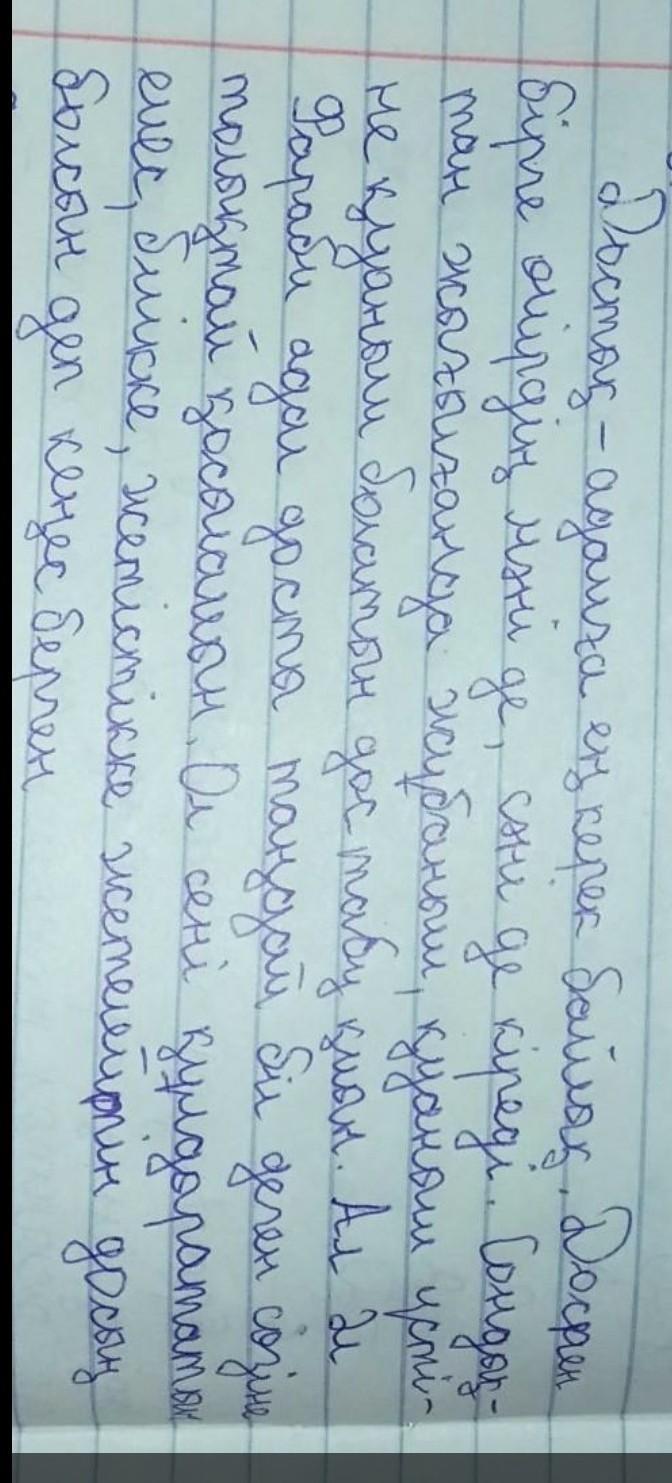 Достық – адамға ең керек байлық. Доспен
бірге өмірдің мәні де, сәні де кіреді. Сондық-
тан жығылғанда жұбаныш, қуаныш үсті-
не қуаныш болатын дос табу қиын. Ал Әл
Фараби адал досты таңдай біл деген сөзіне
толықтай қосыламын. Ол сені құлдырататын
емес, биікке, жетістікке жетелейтін досың
болсын деп кеңес берген